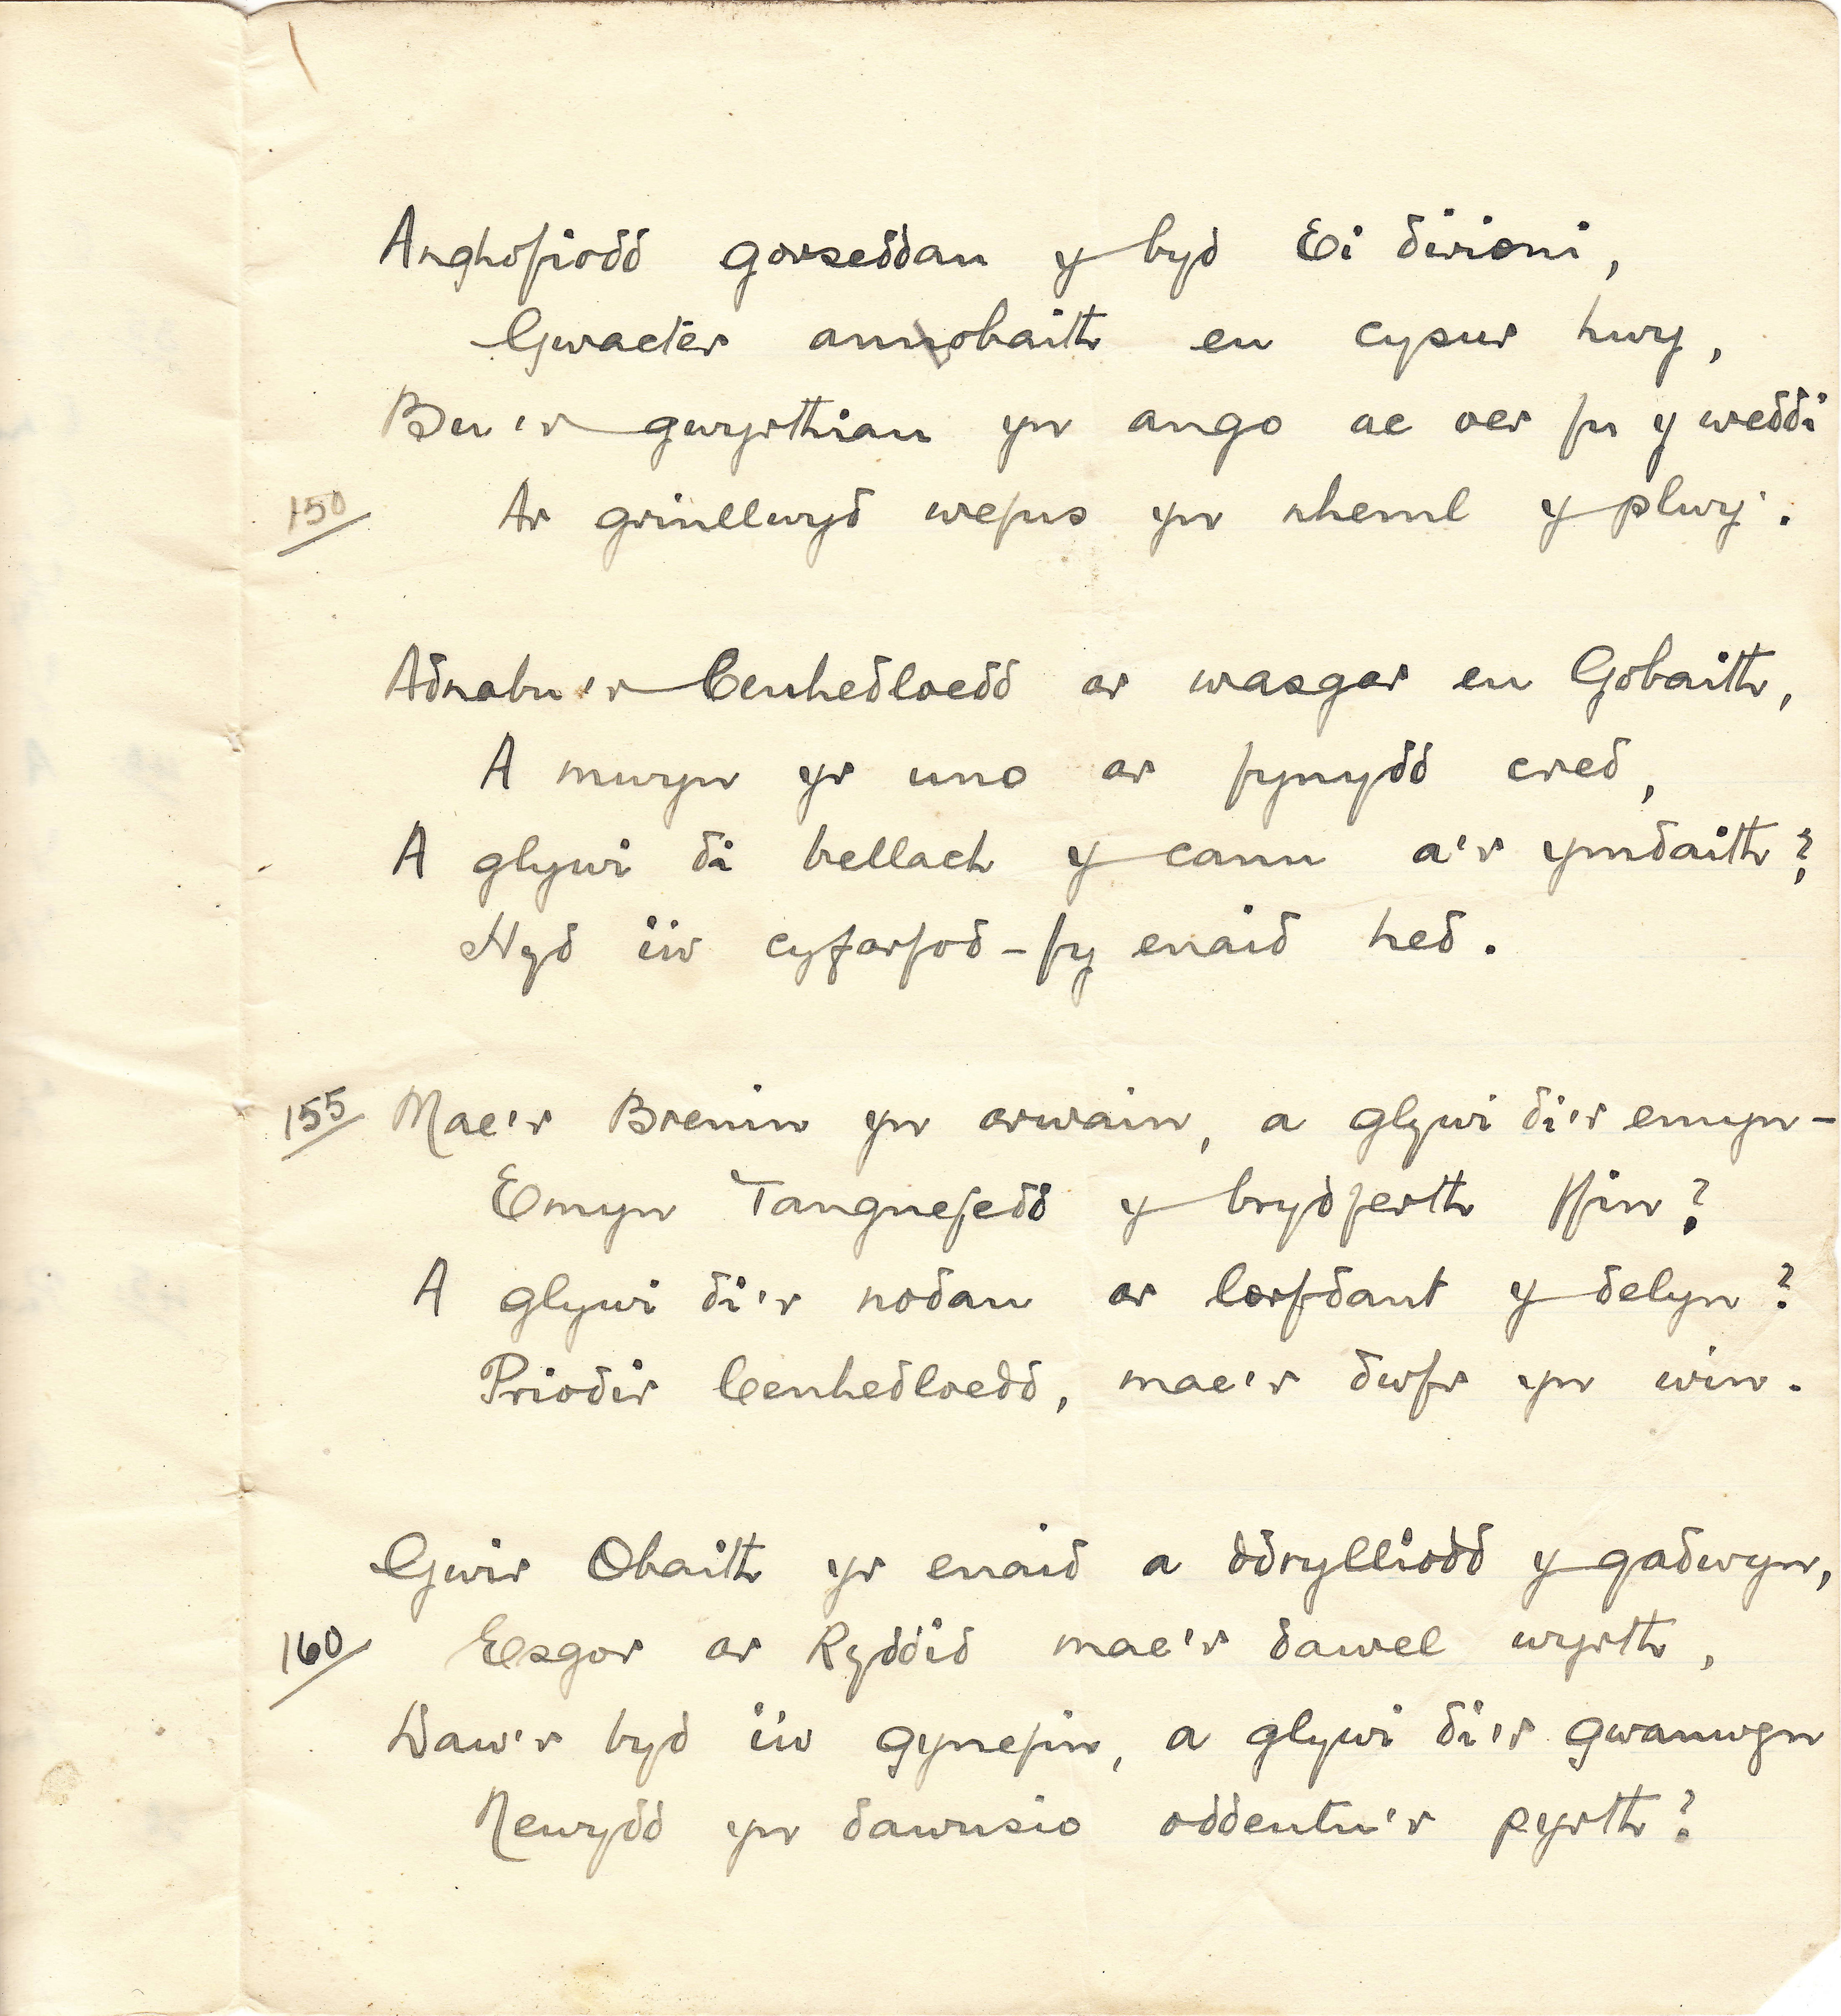 Anghofiodd gorseddau y byd Ei dirioni,
Gwacter annobaith eu cysur hwy,
Bu'r gwyrthiau yn ango ac oer fu y weddi
150 Ar grinllwyd wefus yn nheml y plwy'.
Adnabu'r Cenhedloedd ar wasgar eu Gobaith,
A mwyn yr uno ar fynydd cred,
A glywi di bellach y canu a'r ymdaith?
Nyd i'w cyfarfod - fy enaid hed.
155 Mae'r Brenin yn arwain, a glywi di'r emyn -
Emyn Tangnefedd y brydferth ffin?
A glywi di'r nodau ar lorfdant y delyn?
Priodir Cenhedloedd, mae'r dwfr yn win.
Gwir Obaith yr enaid a ddrylliodd y gadwyn,
160 Esgor ar Ryddid mae'r dawel wyrth,
Daw'r byd i'w gynefin, a glywi di'r gwanwyn
Newydd yn dawnsio oddentu'r pyrth?